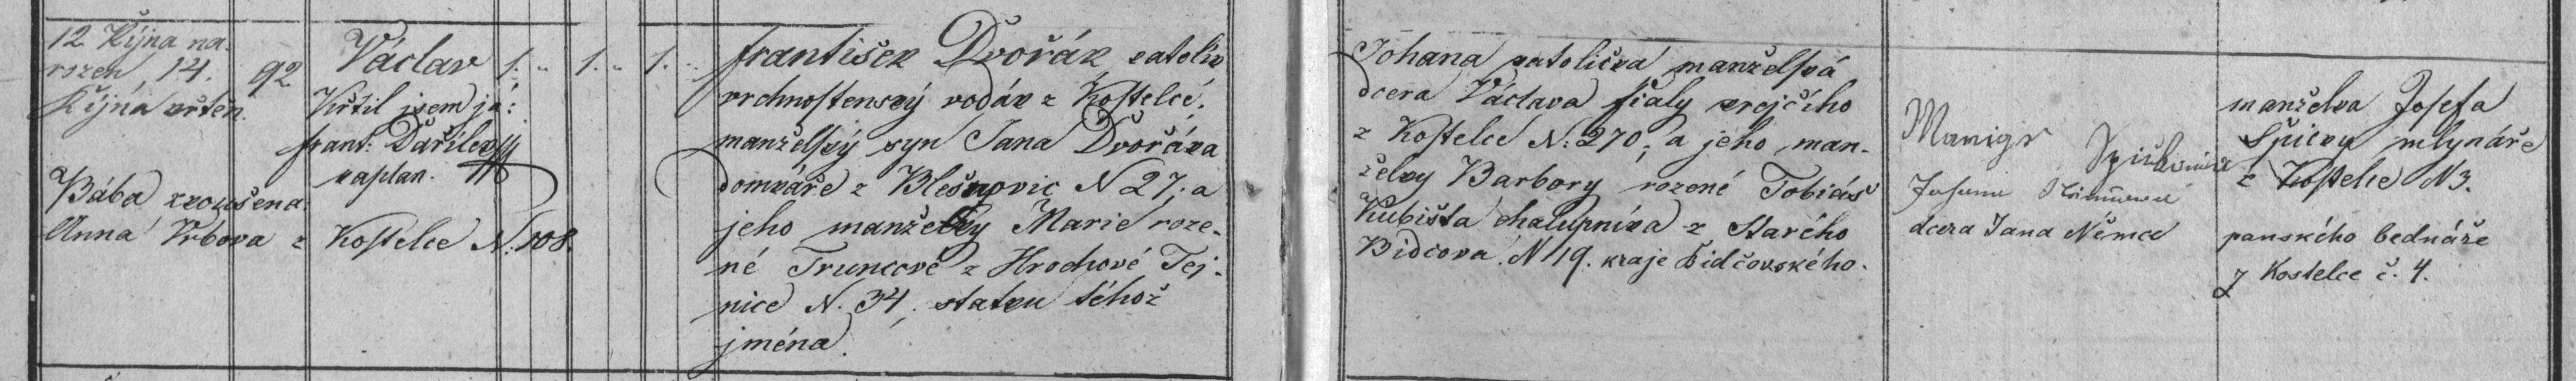 12 Října na-
rozen, 14.
Října křtěn.
Bába zkoušena
Anna Vrbova z Kostelce N. 108.
92
Václav 1. 1. 1.
Křtil jsem já:
frant: Dařílek
kaplan.
František Dvořák katolík
vrchnostenský kočár z Kostelce,
manželský syn Jana Dvořáka
domkáře z Blešnovic N 27, a
jeho manželky Marie roze-
né Truncové z Hrochové Tej-
nice N. 34, statku téhož
jména.
Johana katolička manželská
dcera Václava fialy krejčího
z Kostelce N: 270; a jeho man-
želky Barbory rozené Tobiáš
Kubišta chalupníka z Starého
Bidčova N 19. kraje Bidčovského.
manželka Josefa
Špičky mlynáře
z Kostelce N 3.
dcera Jana Němce
panského bednáře
z Kostelce č. 4.